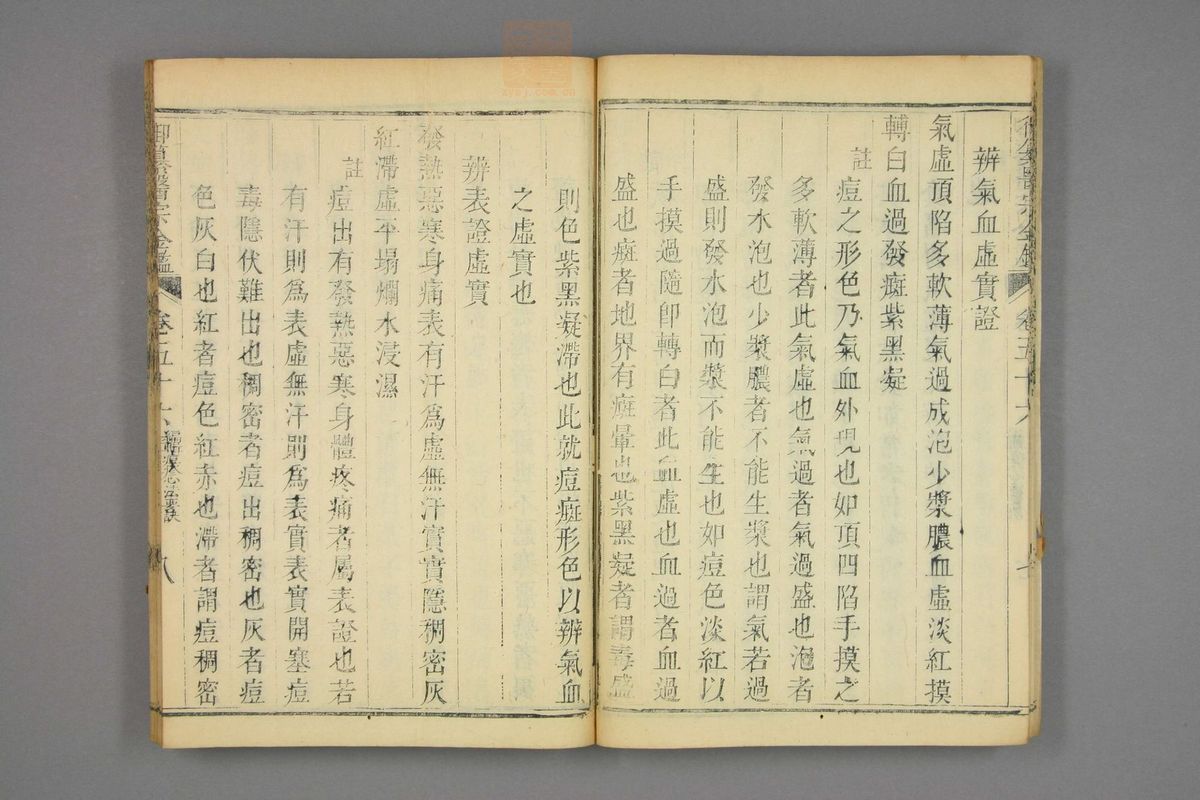 辨氣血虛實證
氣虛頂陷多軟薄氣過成泡少漿膿血虛淡紅摸
轉白血過發癍紫黑凝
註
痘之形色乃氣血外現也如頂凹陷手摸之
多軟薄者此氣虛也氣過者氣過盛也泡者
發水泡也少漿膿者不能生漿也謂氣若過
盛則發水泡而漿不能生也如痘色淡紅以
手摸過隨即轉白者此血虛也血過者血過
盛也癍者地界有癍暈也紫黑凝者謂毒盛
則色紫黑凝滯也此就痘癍形色以辨氣血
之虛實也
辨表證虛實
發熱惡寒身痛表有汗爲虛無汗實實隱稠密灰
紅滯虛平塌爛水浸濕
註
痘出有發熱惡寒身體疼痛者屬表證也若
有汗則爲表虛無汗則爲表實表實開塞痘
毒隱伏難出也稠密者痘出稠密也灰者痘
色灰白也紅者痘色紅赤也滯者謂痘稠密
御纂醫宗金鑑
卷五十六
八